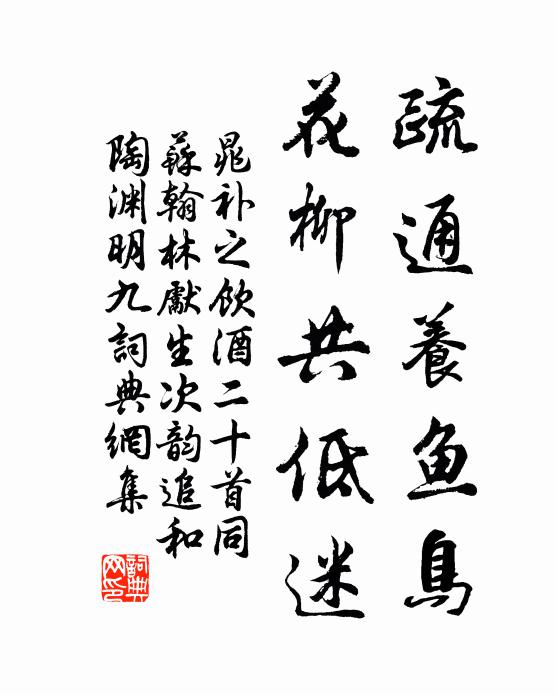 疏通養魚鳥
花柳共低迷
晁补之飲酒二十首同
蘇翰林獻生次韵追和
陶渊明九詞典網集
詞典网印